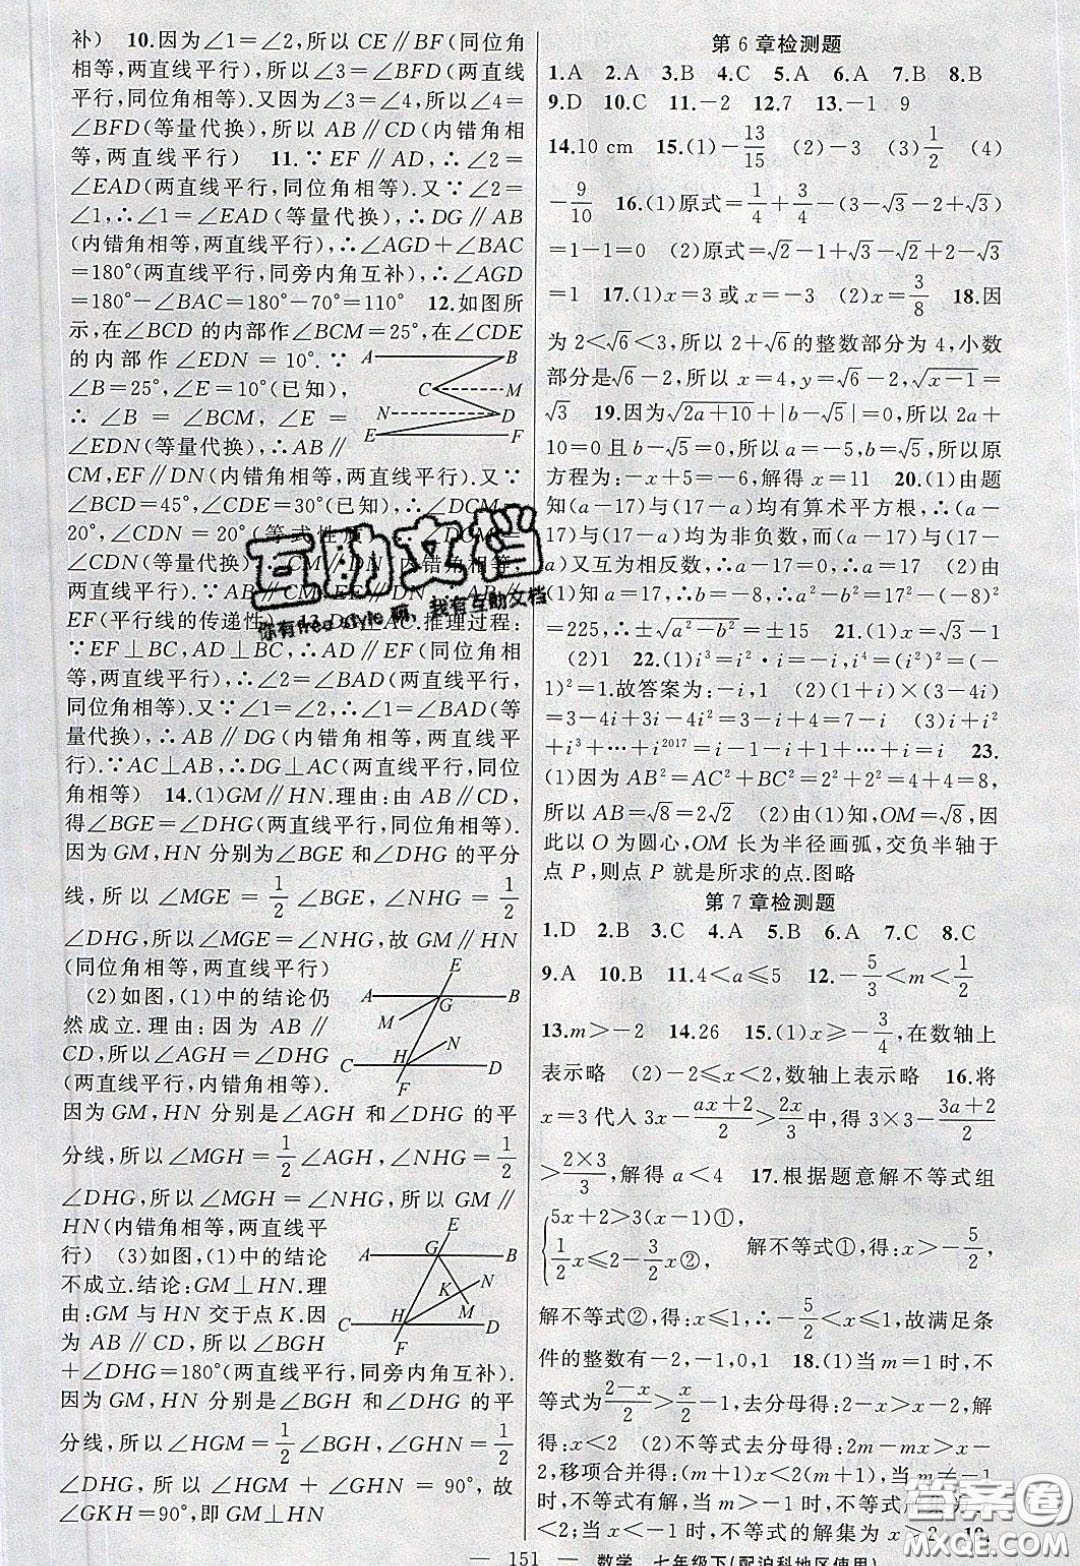 补) 10.因为∠1=∠2,所以 CE∥BF(同位角
相等,两直线平行),所以∠3=∠BFD(两直线
平行,同位角相等).又因为∠3=∠4,所以∠4=
∠BFD(等量代换),所以 AB∥CD(内错角相
等,两直线平行) 11.∵EF∥AD,∴∠2=
∠EAD(两直线平行,同位角相等).又∵∠2=
∠1,∴∠1=∠EAD(等量代换),∴DG∥AB
(内错角相等,两直线平行),∴∠AGD+∠BAC
=180°(两直线平行,同旁内角互补),∴∠AGD
=180°-∠BAC=180°-70°=110° 12.如图所
示,在∠BCD 的内部作∠BCM=25°,在∠CDE
的内部作∠EDN=10°.∵
∠B=25°,∠E=10°(已知),
∴∠B=∠BCM,∠E=
∠EDN(等量代换),∴AB∥
CM,EF∥DN(内错角相等,两直线平行).又∵
∠BCD=45°,∠CDE=30°(已知),∴∠DCM=
20°,∠CDN=20°(等式性质
∠CDN(等量代换),∴CM∥DN(内错角相等,
两直线平行).
EF(平行线的传递性) 13.DG⊥AC.推理过程:
∵EF⊥BC,AD⊥BC,∴AD∥EF(同位角相
等,两直线平行),∴∠2=∠BAD(两直线平行,
同位角相等).又∵∠1=∠2,∴∠1=∠BAD(等
量代换),∴AB∥DG(内错角相等,两直线平
行).∵AC⊥AB,∴DG⊥AC(两直线平行,同位
角相等) 14.(1)GM∥HN.理由:由 AB∥CD,
得∠BGE=∠DHG(两直线平行,同位角相等).
因为 GM,HN 分别为∠BGE 和∠DHG 的平分
线,所以∠MGE=1/2∠BGE,∠NHG=1/2
∠DHG,所以∠MGE=∠NHG,故 GM∥HN
(同位角相等,两直线平行)
(2)如图,(1)中的结论仍
然成立.理由:因为 AB∥
CD,所以∠AGH=∠DHG
(两直线平行,内错角相等).
因为 GM,HN 分别是∠AGH 和∠DHG 的平
分线,所以∠MGH=1/2∠AGH,∠NHG=1/2
∠DHG,所以∠MGH=∠NHG,所以 GM∥
HN(内错角相等,两直线平
行) (3)如图,(1)中的结论
不成立.结论:GM⊥HN.理
由:GM 与 HN 交于点 K.因
为 AB∥CD,所以∠BGH
+∠DHG=180°(两直线平行,同旁内角互补).
因为 GM,HN 分别是∠BGH 和∠DHG 的平
分线,所以∠HGM=1/2∠BGH,∠GHN=1/2
∠DHG,所以∠HGM+∠GHN=90°,故
∠GKH=90°,即 GM⊥HN
A B C M N D E F
E A G B M N C H D F
E A G B N K M H C D F
第 6 章检测题
1.A 2.A 3.B 4.C 5.A 6.A 7.B 8.B
9.D 10.C 11.-2 12.7 13.-1 9
14.10 cm 15.(1)-13/15 (2)-3 (3)1/2 (4)
-9/10 16.(1)原式=1/4+3/4-(3-√3-2+√3)
=1-1=0 (2)原式=√2-1+√3-√2+2-√3
=1 17.(1)x=3 或 x=-3 (2)x=3/8 18.因
为 2<√6<3,所以 2+√6的整数部分为 4,小数
部分是√6-2,所以 x=4,y=√6-2,√(x-1)=
√3 19.因为√(2a+10)+|b-√5|=0,所以 2a+
10=0 且 b-√5=0,所以 a=-5,b=√5,所以原
方程为:-x+5=-6,解得 x=11 20.(1)由题
知(a-17)与(17-a)均有算术平方根,∴(a-
17)与(17-a)均为非负数,而(a-17)与(17-
a)又互为相反数,∴a-17=0,∴a=17 (2)由
(1)知 a=17,∴b=-8,∴a²-b²=17²-(-8)²
=225,∴±√(a²-b²)=±15 21.(1)x=√3-1
(2)1 22.(1)i³=i²·i=-i,i⁴=(i²)²=(-
1)²=1.故答案为:-i,1 (2)(1+i)×(3-4i)
=3-4i+3i-4i²=3-i+4=7-i (3)i+i²
+i³+…+i²⁰¹⁷=i-1-i+1+…+i=i 23.
(1)因为 AB²=AC²+BC²=2²+2²=4+4=8,
所以 AB=√8=2√2 (2)由(1)知,OM=√8,因
此以 O 为圆心,OM 长为半径画弧,交负半轴于
点 P,则点 P 就是所求的点.图略
第 7 章检测题
1.D 2.B 3.C 4.A 5.B 6.A 7.C 8.C
9.A 10.B 11.4<a≤5 12.-5/3<m<1/2
13.m>-2 14.26 15.(1)x≥-3/4,在数轴上
表示略 (2)-2≤x<2,数轴上表示略 16.将
x=3 代入 3x-(ax+2)/2>2x/3中,得 3×3-(3a+2)/2
>(2×3)/3,解得 a<4 17.根据题意解不等式组
{5x+2>3(x-1)①,
1/2x≤2-3/2x②, 解不等式①,得:x>-5/2,
解不等式②,得:x≤1,∴-5/2<x≤1,故满足条
件的整数有-2,-1,0,1 18.(1)当 m=1 时,不
等式为(2-x)/2>x/2-1,去分母得:2-x>x-2,解
得:x<2 (2)不等式去分母得:2m-mx>x-
2,移项合并得:(m+1)x<2(m+1),当 m≠-1
时,不等式有解,当 m>-1 时,不等式解集为 x
<2;当 x<-1 时,不等式的解集为 x>2 19.
互助文档
你有free style 嘛,我有互助文档
答案圈
MXQE.COM
— 151 — 数学 七年级下(配沪科地区使用)